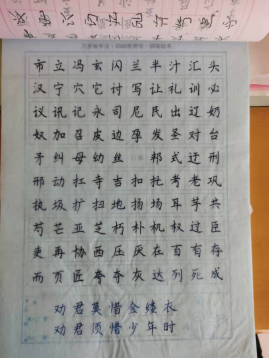 市立冯玄闪兰半汁汇头
汉宁穴它讨写让礼训必
议讯记永司尼民出辽奶
奴加召皮边孕发圣对台
矛纠母幼丝邦式迂刑
邢动扛寺吉扣扥考老巩
执圾扩扫地扬场耳芋共
芒亚芝朽朴机权过臣
吏再协西压厌在百有存
而页匠夸夺灰达列死成
劝君莫惜金缕衣
劝君须惜少年时